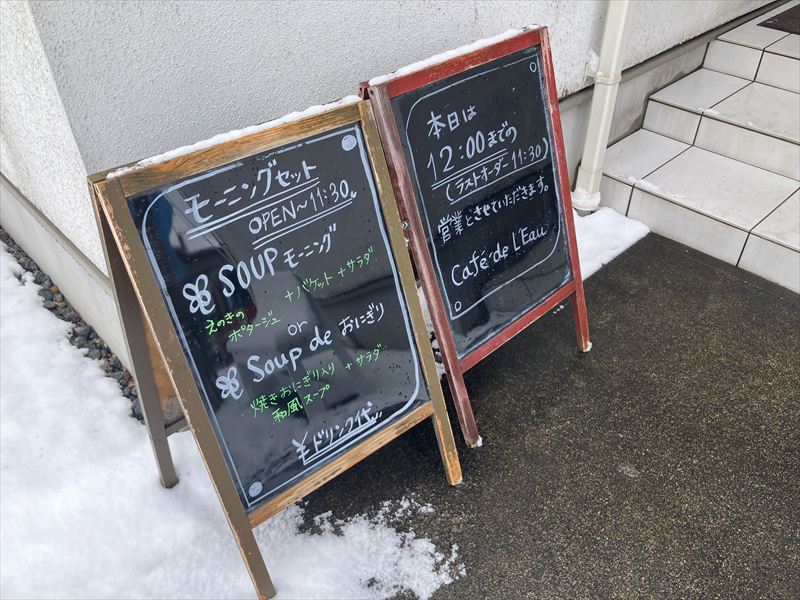 モーニングセット
OPEN〜11:30
SOUP モーニング
えのきの
ポタージュ
+バゲット+サラダ
or
Soup de おにぎり
焼きおにぎり入り
和風スープ
+サラダ
¥ドリンク代
本日は
12:00までの
(ラストオーダー11:30)
営業とさせていただきます。
Café de L'Eau